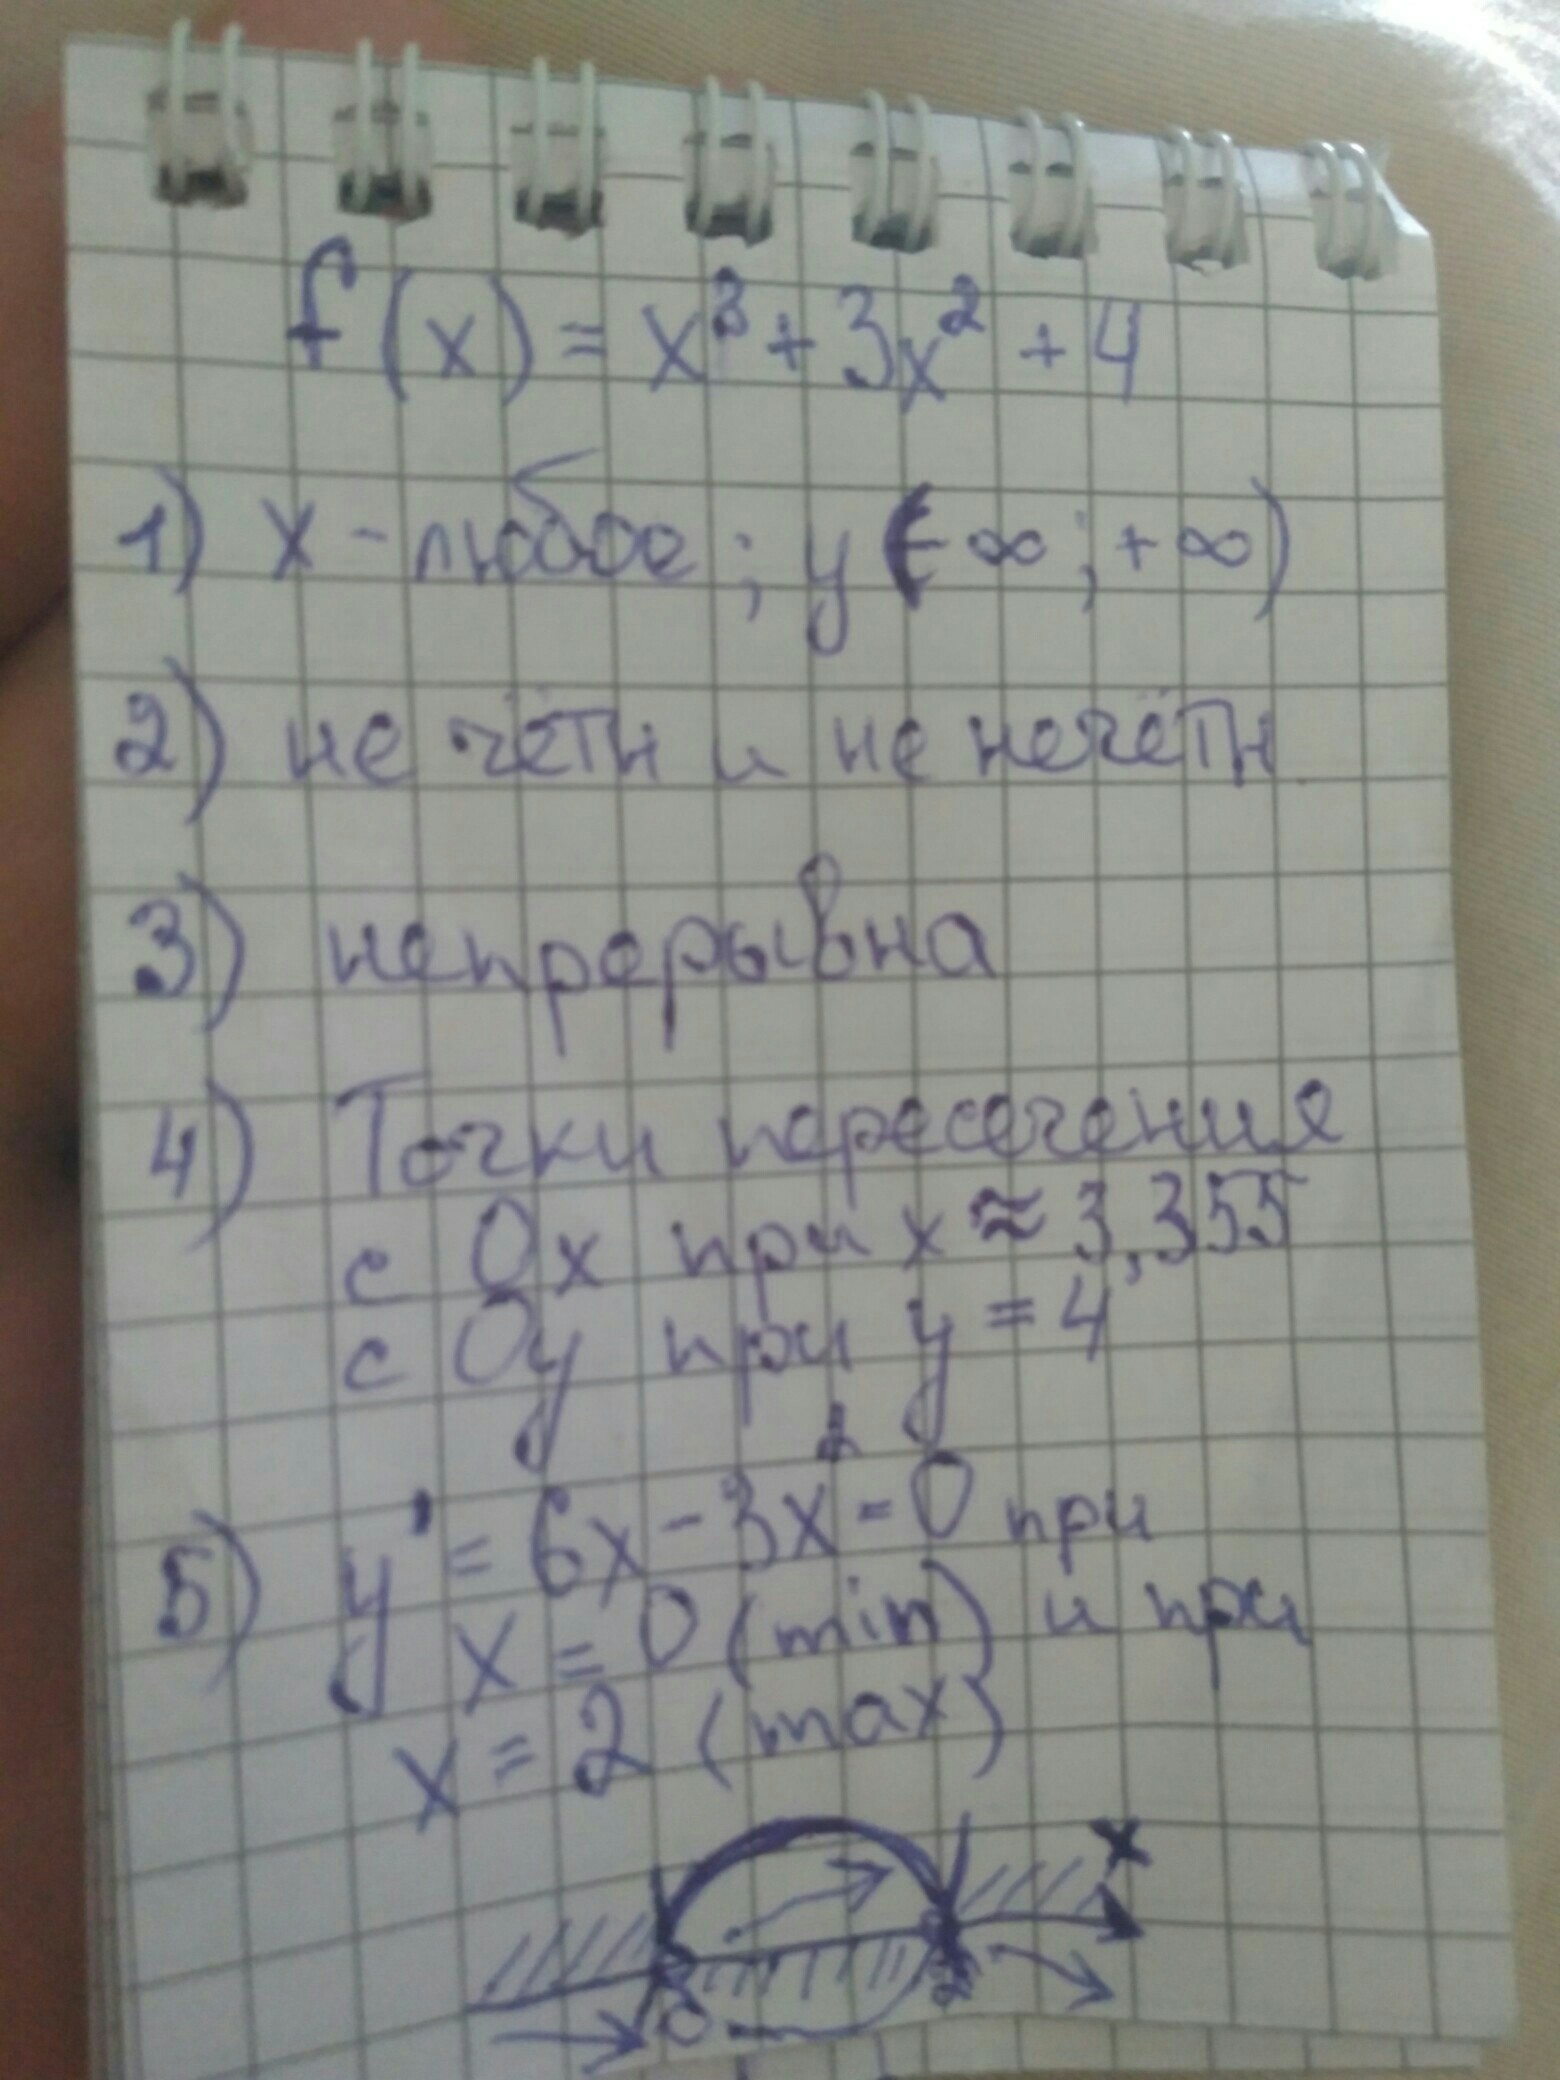 f(x) = x³ + 3x² + 4
1) x - любое ; y (-∞ ; +∞)
2) не чётн и не нечётн.
3) непрерывна
4) Точки пересечения
с Ox при x ≈ 3,355
с Oy при y = 4
5) y' = 6x - 3x² = 0 при
x = 0 (min) и при
x = 2 (max)
x
0 2